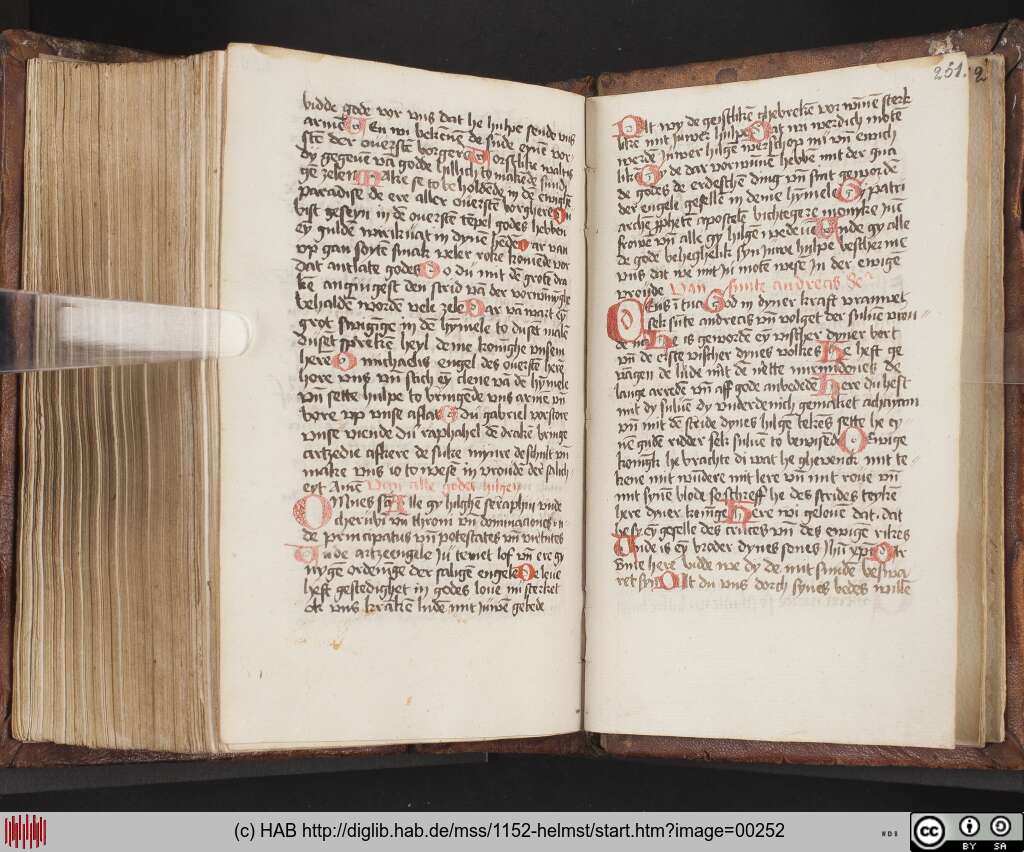 bidde gode vor vns dat he hulpe sende vns
arme En wi bekene de sunde
sten der ouerste borgere
dy gegeue va godde hillich to makede sund
ge zelen Make se to beholdede in de ewighe
paradise de ere aller ouersten borghere
bist geseyn in de ouersten tepel godes hebben
ey gulden wirknat in dyne hede ar van
vp gan soyte smak veler roke komede vor
dat antlate godes o du mit de grote dra
ke anginigest den strid va der vorwinige
behalde worde vele zele ar va wart ey
grot swigige in de hymele to duset male
duset spreke heyl deme konighe vnsem
here O michahelis engel des ouerste here
hore vns vn stich ey clene va de hymele
vn sette hulpe to bringede vns arme vn
vore vp vnse aflat du gabriel vorstore
vnse viende du raphahel de drake bringe
artzedie de suke mynre de schult vn
make vns io to wese in vroude der salich
eyt Ame Van alle godes hilgen
Omnes sci Alle gy hilghen seraphin vnde
cherubi vn throni vn dominaciones vn
de principatus vn potestates vn virtutes
vn de artzeengele Ju temet lof vn ere gy
nygen ordenige der saligen engele De leue
heft gestedighet in godes loue mi sterket
ok vns kranken lude mit iuwen gebede
251. 2
Dat wy de geistliken ghebreken vorwinen sterk
liken mit iuwer hulpe Dat wi werdich moten
werde iuwer hilgen werschop mi vn ewich
like Gi de dar vorwinne hebbe mit der gna
de godes de erdeschen ding vn sint geworde
der engele geselle in deme hymele Gy patri
archen pphete apostele bichtegere monike Ju
frowe vn alle gy hilgen wedewe Vnde gy alle
de gode behegelik syn iuwe hulpe bescherme
vns dat we mit iu mote wese in der ewige
vroude Van sunte andreas
Deus i tua God in dyner kraft vrauwet
sek sunte andreas vn volget der suluen vrou
de na He is geworde ey vischer dyner bort
vn de erste vischer dynes volkes He heft ge
vagen de lude mit de nette mirmidones de
lange arreden vn aff gode anbedede Here du hest
mit dy suluen dy vnderdenich gemaket achaiam
vn mit de stride dynes hilgen tekes sette he ey
nen guden ridder sek suluen to bewisede O Ewige
konigk he brachte di wat he ghewenck mit te
kene mit wundere mit lere vn mit roue vn
mit synem blode beschreff he des strides teyke
here dyner konige Here wi geloue dat dat
he sy ey geselle des cruces vn des ewige rikes
Vnde is ey broder dynes sones Jhu xpi Or
vmme here bidde we dy de mit sunde beswa
ret syn Dat du vns dorch synes bedes wille
(c) HAB http://diglib.hab.de/mss/1152-helmst/start.htm?image=00252
WDB
cc BY SA